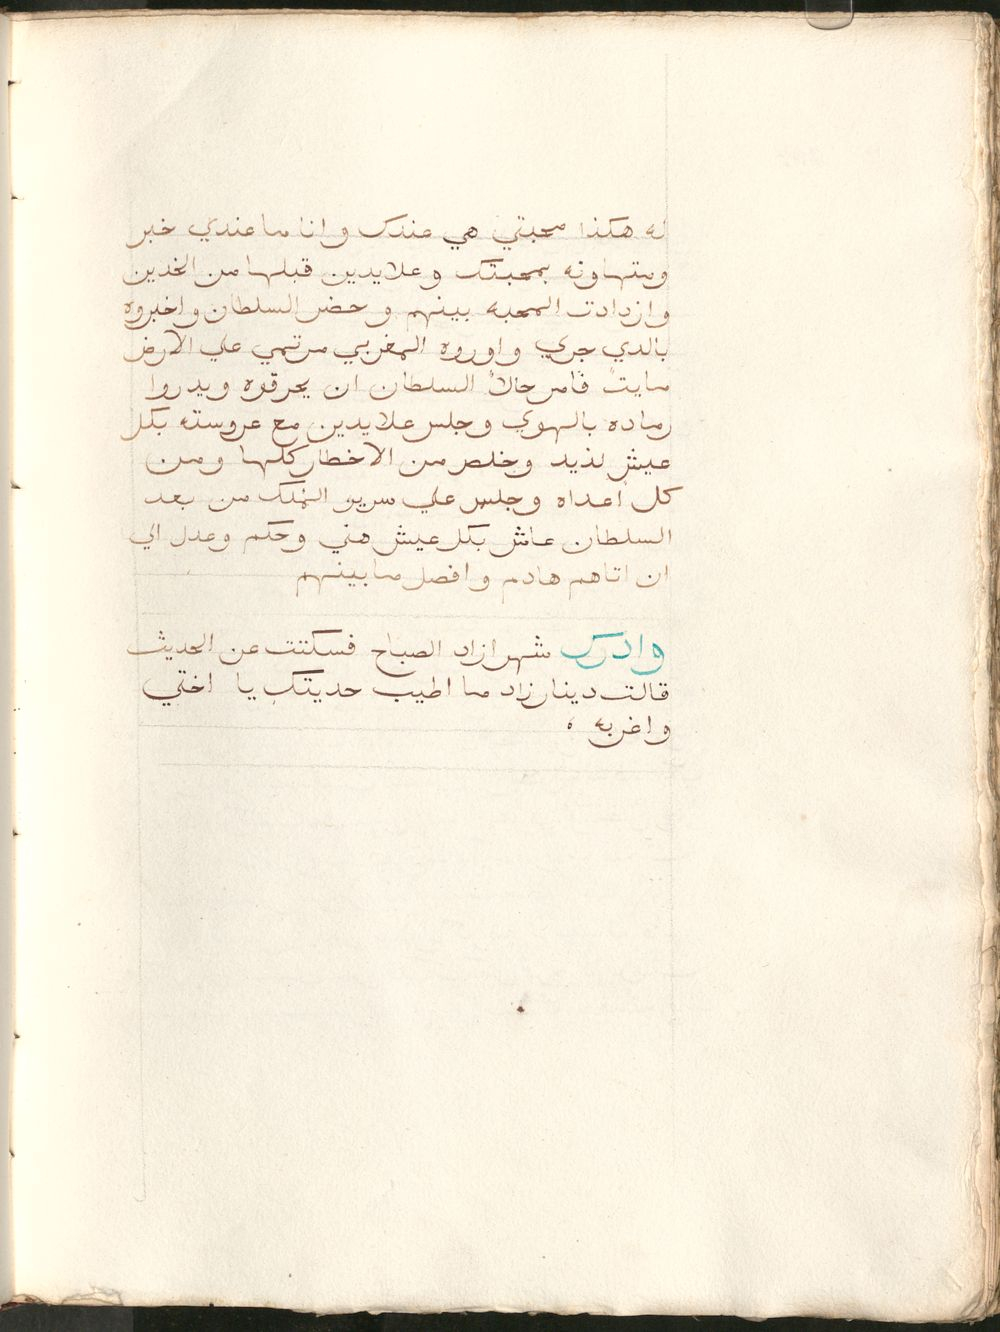 له هكذا محبتي هي عندك وانا ما عندي خبر
ومتهاونه بمحبتك وعلايدين قبلها من الخدين
وازدادت المحبه بينهم وحضر السلطان واخبروه
بالدي جري واوروه المغربي مرتمي علي الارض
مايتً فامر حالاً السلطان ان يحرقوه ويدروا
رماده بالهوي وجلس علايدين مع عروسته بكل
عيش لذيد وخلص من الاخطار كلها ومن
كل اعداه وجلس علي سرير الملك من بعد
السلطان عاش بكل عيش هني وحكم وعدل الي
ان اتاهم هادم وافصل ما بينهم
وادرك شهرازاد الصباح فسكتت عن الحديث
قالت دينارزاد ما اطيب حديتك يا اختي
واغربه ،